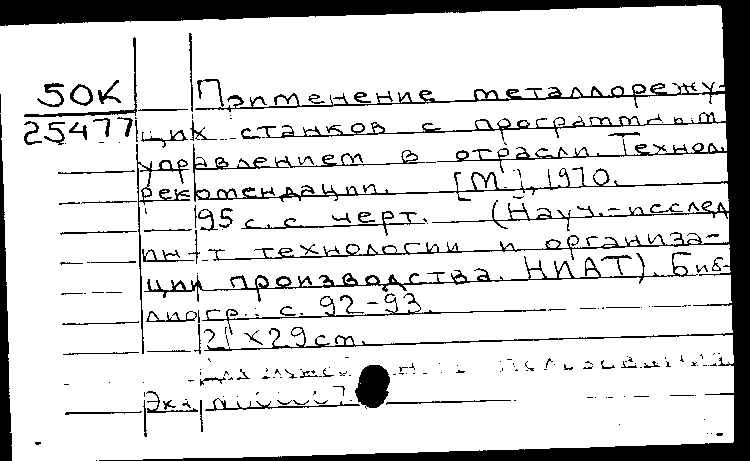 50К
25477
Применение металлорежу-
щих станков с программным
управлением в отрасли. Технол.
рекомендации. [М.], 1970.
95 с. с черт. (Науч.-исслед.
ин-т технологии и организа-
ции производства. НИАТ). Биб-
лиогр.: с. 92-93.
21×29 cm.
Для служебного пользования
Экз